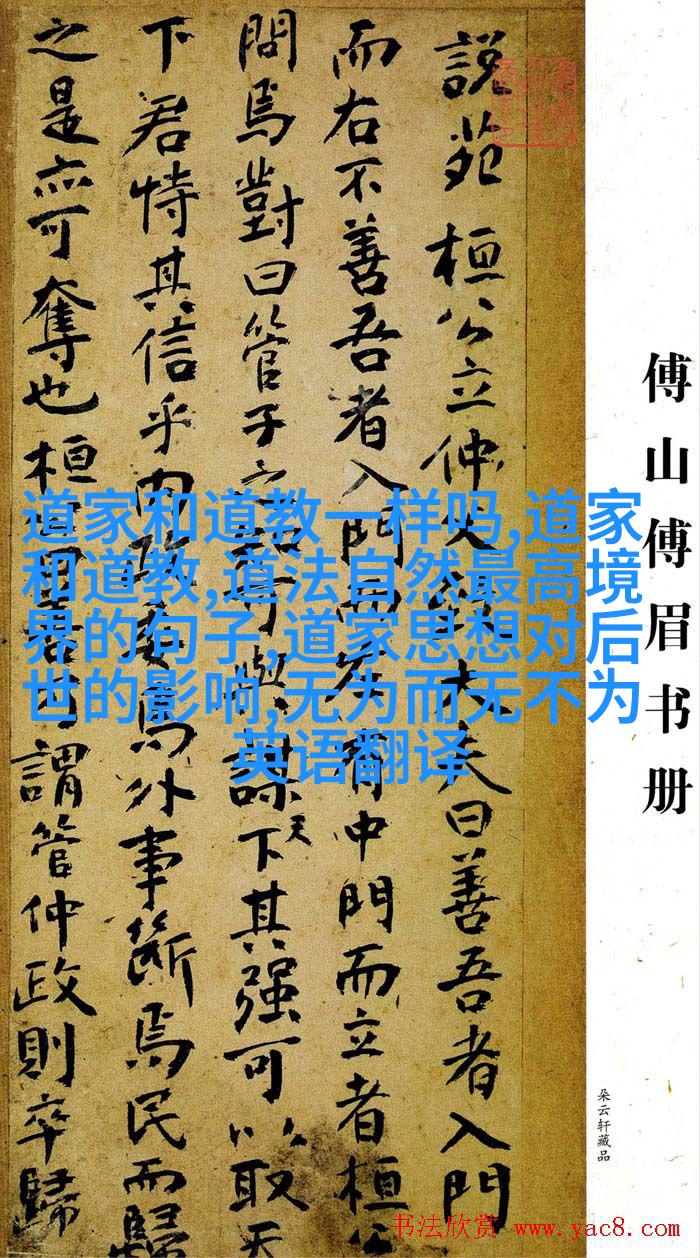 説苑 桓公立仲父致大夫曰善吾者入門
而右不善吾者入門而左有中門而立者桓公
問焉對曰管子之知可與謀天下其强可以取天
下君恃其信乎内政委焉外事斷焉民而歸
之是亦可奪也桓公曰善乃謂管仲政則卒歸
傅山傅眉书册
朵云轩藏品
道家和道教一样吗,道家
和道教,道法自然最高境
界的句子,道家思想对后
世的影响,无为而无不为
英语翻译
书法欣赏 www.yac8.com